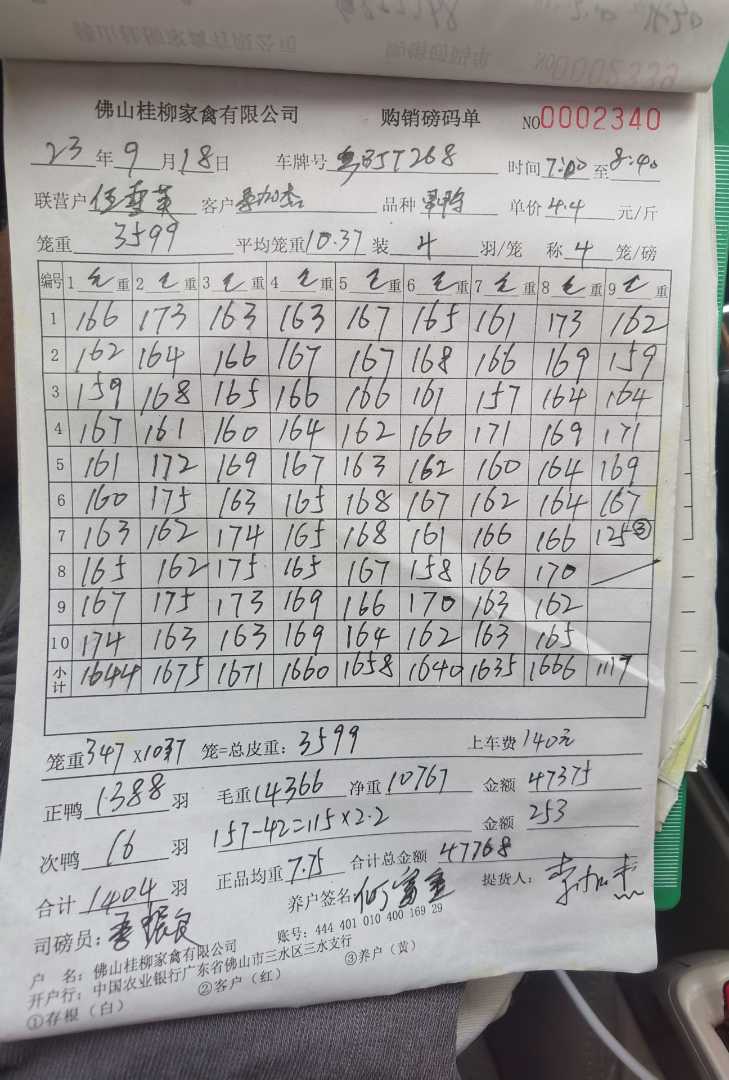 佛山桂柳家禽有限公司 购销磅码单 NO0002340
23年9月18日 车牌号 时间7:00至8:40
联营户 客户李加杰 品种 单价4.4元/斤
笼重3599 平均笼重10.37装4羽/笼 称4笼/磅
编号 1 毛重 2 毛重 3 毛重 4 毛重 5 毛重 6 毛重 7 毛重 8 毛重 9 毛重
1 166 173 163 163 167 165 161 173 162
2 162 164 166 167 167 168 166 169 159
3 159 168 165 166 166 161 157 164 164
4 167 161 160 164 162 166 171 169 171
5 161 172 169 167 163 162 160 164 169
6 160 175 163 165 168 167 162 164 167
7 163 162 174 165 168 161 166 166 125③
8 165 162 175 165 167 158 166 170
9 167 175 173 169 166 170 163 162
10 174 163 163 169 164 162 163 165
小计 1644 1675 1671 1660 1658 1640 1635 1666 1117
笼重347×1037 笼=总皮重：3599 上车费140元
正鸭1388羽 毛重14366 净重10767 金额47375
次鸭16羽 157-42=115×2.2 金额253
合计1404羽 正品均重7.75 合计总金额47768
司磅员： 养户签名 提货人：李加杰
户 名：佛山桂柳家禽有限公司 账号：444 401 010 400 169 29
开户行：中国农业银行广东省佛山市三水区三水支行
①存根（白） ②客户（红） ③养户（黄）